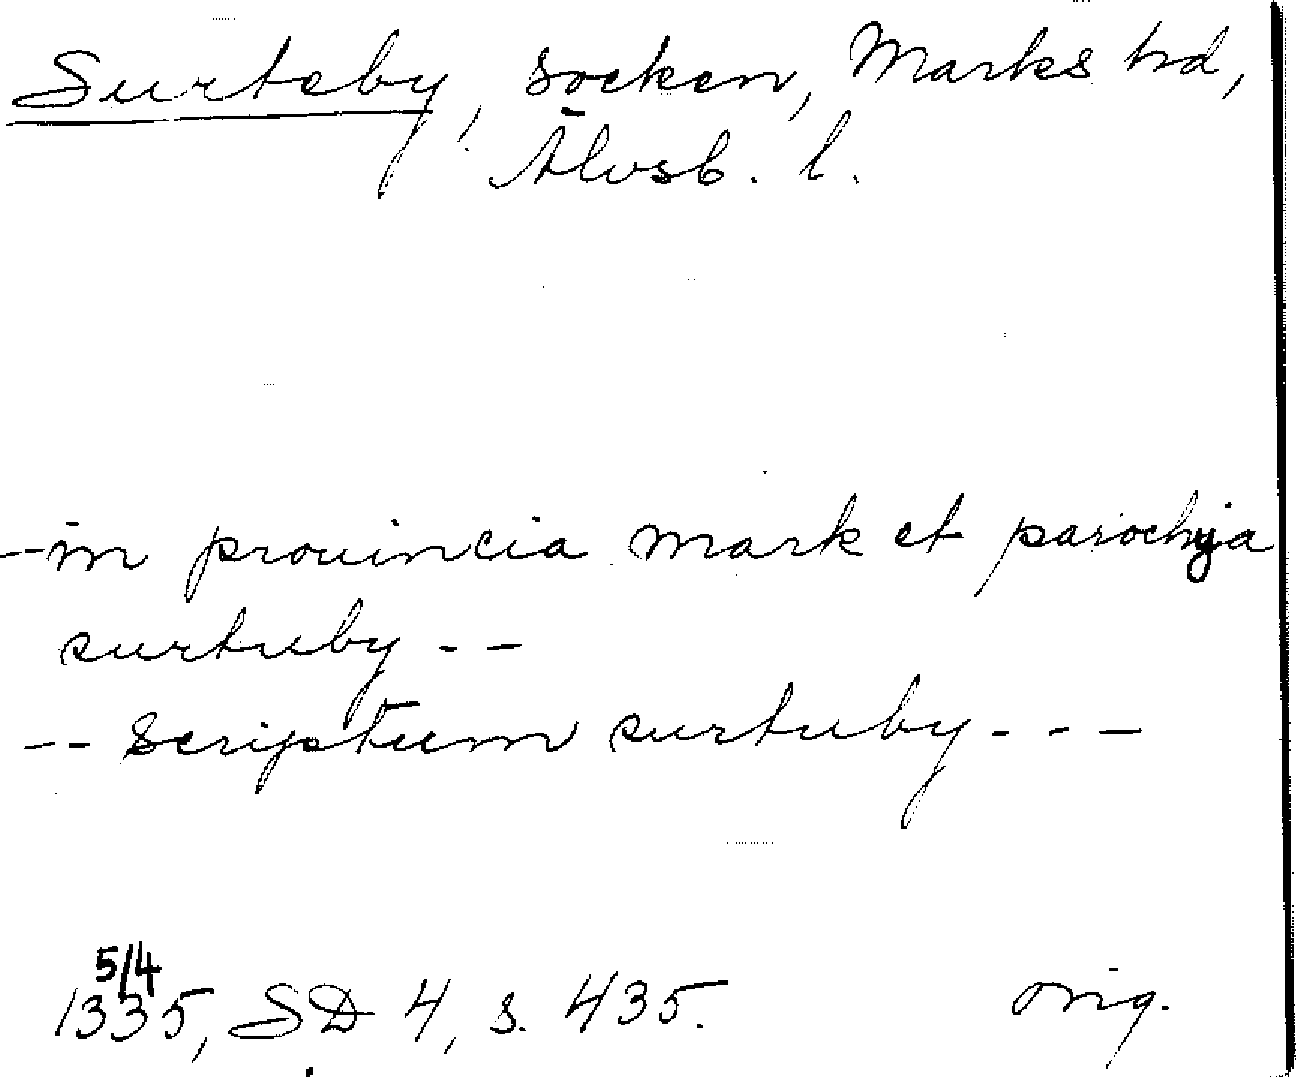 Surteby, socken, Marks hd,
Älvsb. l.
-- in prouincia mark et parochija
surtuby - -
-- Scriptum surtuby - - -
5/4
1335, SD 4, s. 435. orig.